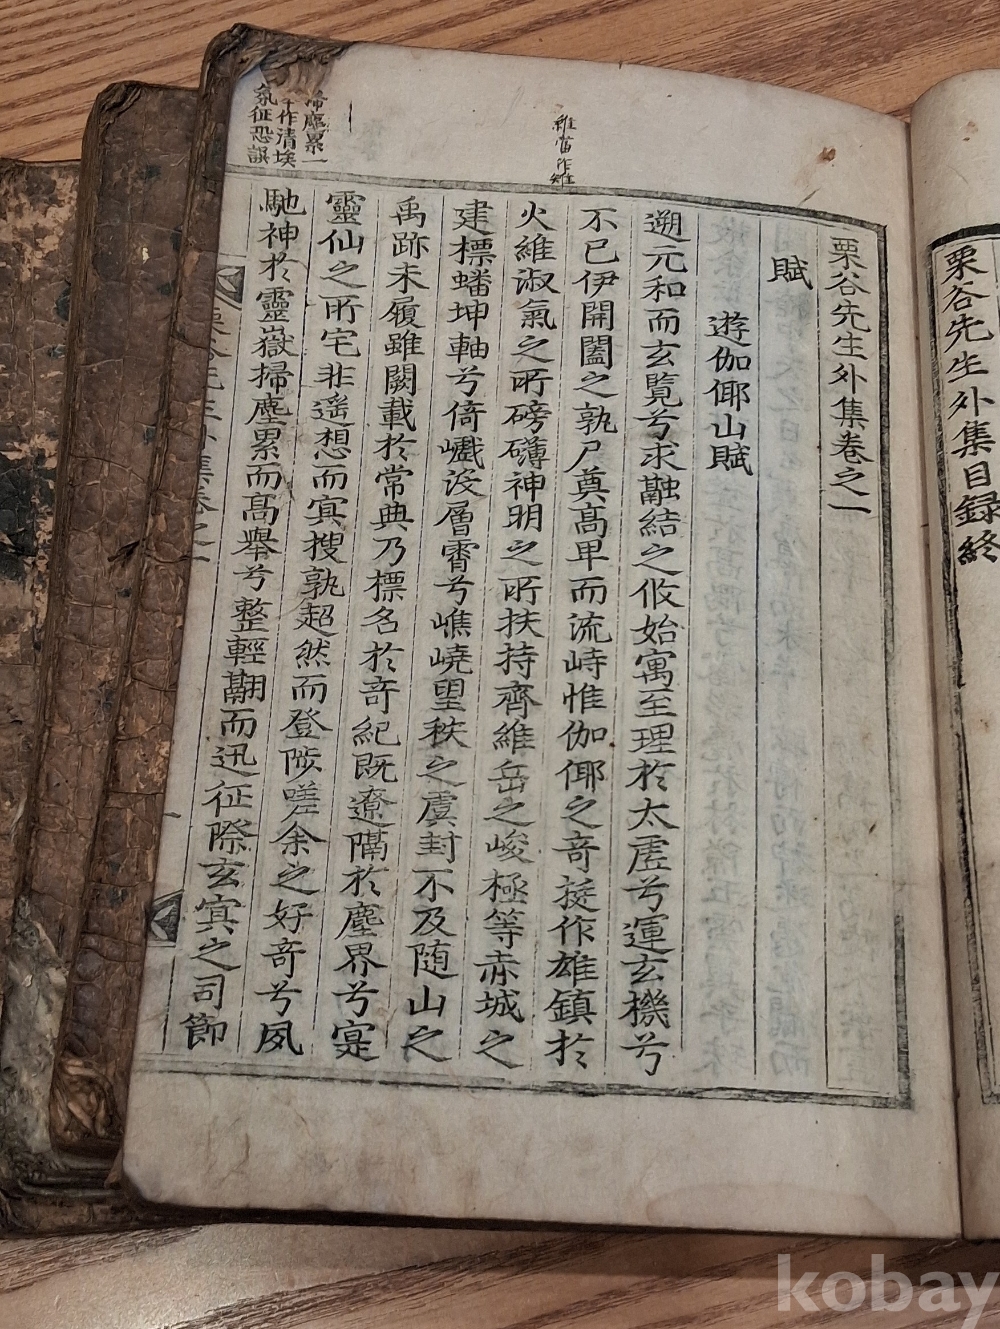 栗谷先生外集目録終
栗谷先生外集卷之一
賦
遊伽倻山賦
遡元和而玄覧兮求融結之攸始寓至理於太虗兮運玄機兮
不已伊開闔之孰尸奠高卑而流峙惟伽倻之竒挺作雄鎮於
火維淑氣之所磅礴神明之所扶持齊維岳之峻極等赤城之
建標蟠坤軸兮倚巇没層霄兮嶕嶢望秩之虞封不及随山之
禹跡未履雖闕載於常典乃標名於竒紀既遼隔於塵界兮寔
靈仙之所宅非遥想而冥捜孰超然而登陟嗟余之好竒兮夙
馳神於靈嶽掃塵累而髙舉兮整輕翮而迅征際玄冥之司節
維當作雉
掃塵累一
作清埃
氛征恐誤
kobay